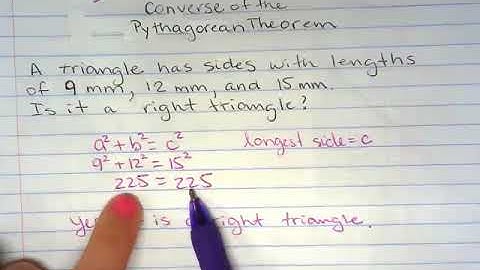 Converse of the
Pythagorean Theorem
A triangle has sides with lengths
of 9 mm, 12 mm, and 15 mm.
Is it a right triangle?
a² + b² = c² longest side = c
9² + 12² = 15²
225 = 225
is right triangle.